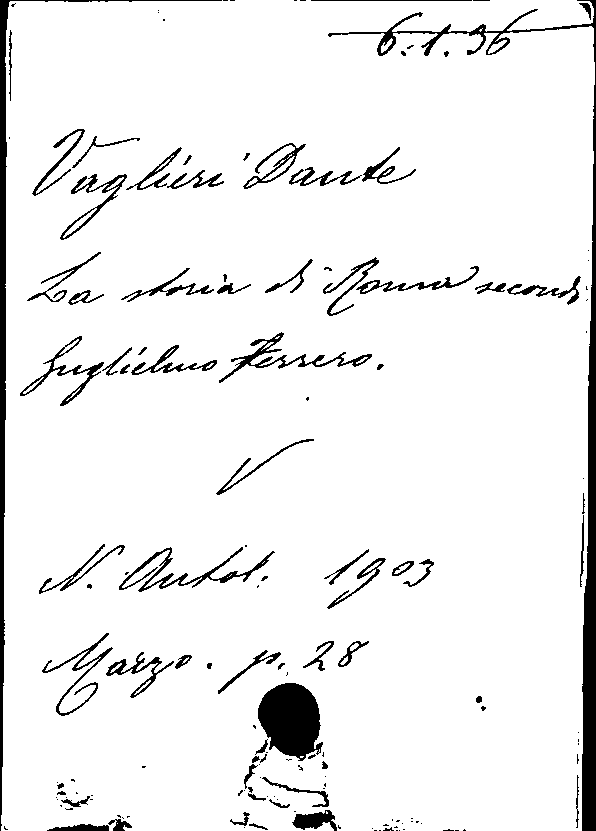 6.1.36
Vaglieri Dante
La storia di Roma secondo
Guglielmo Ferrero.
V
N. Antol. 1903
Marzo. p. 28